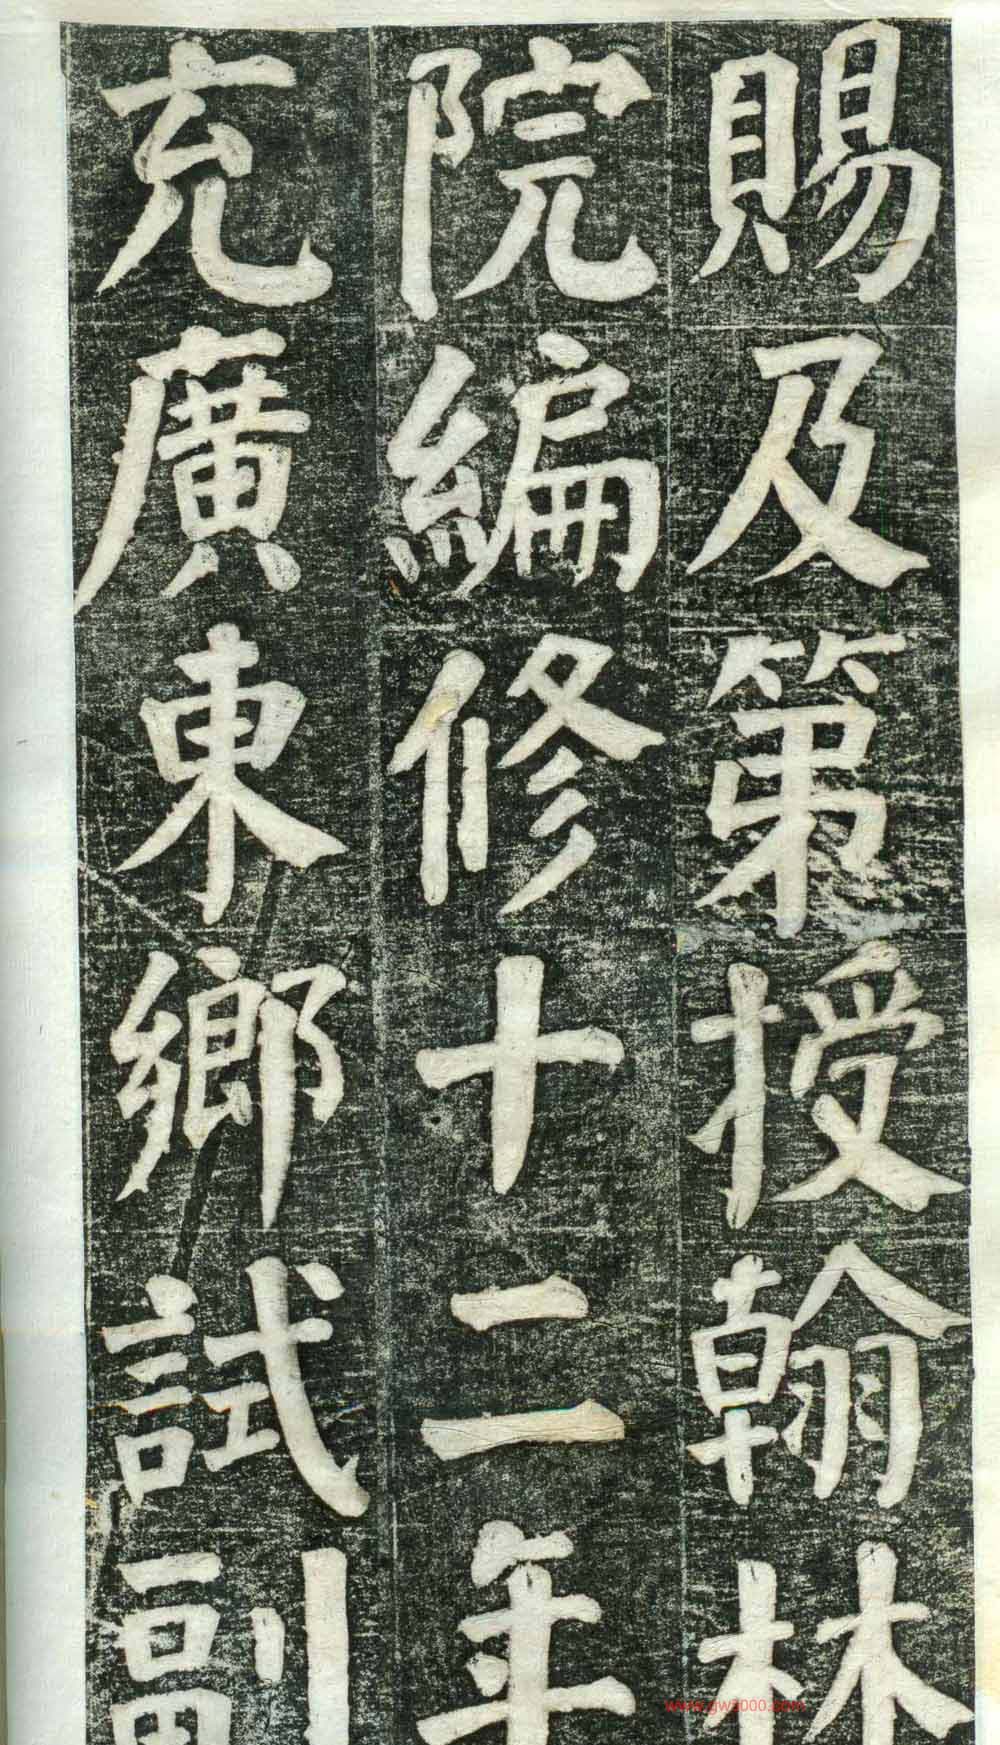 賜及第授翰林
院編修十二年
充廣東鄉試副
www.gw8000.com